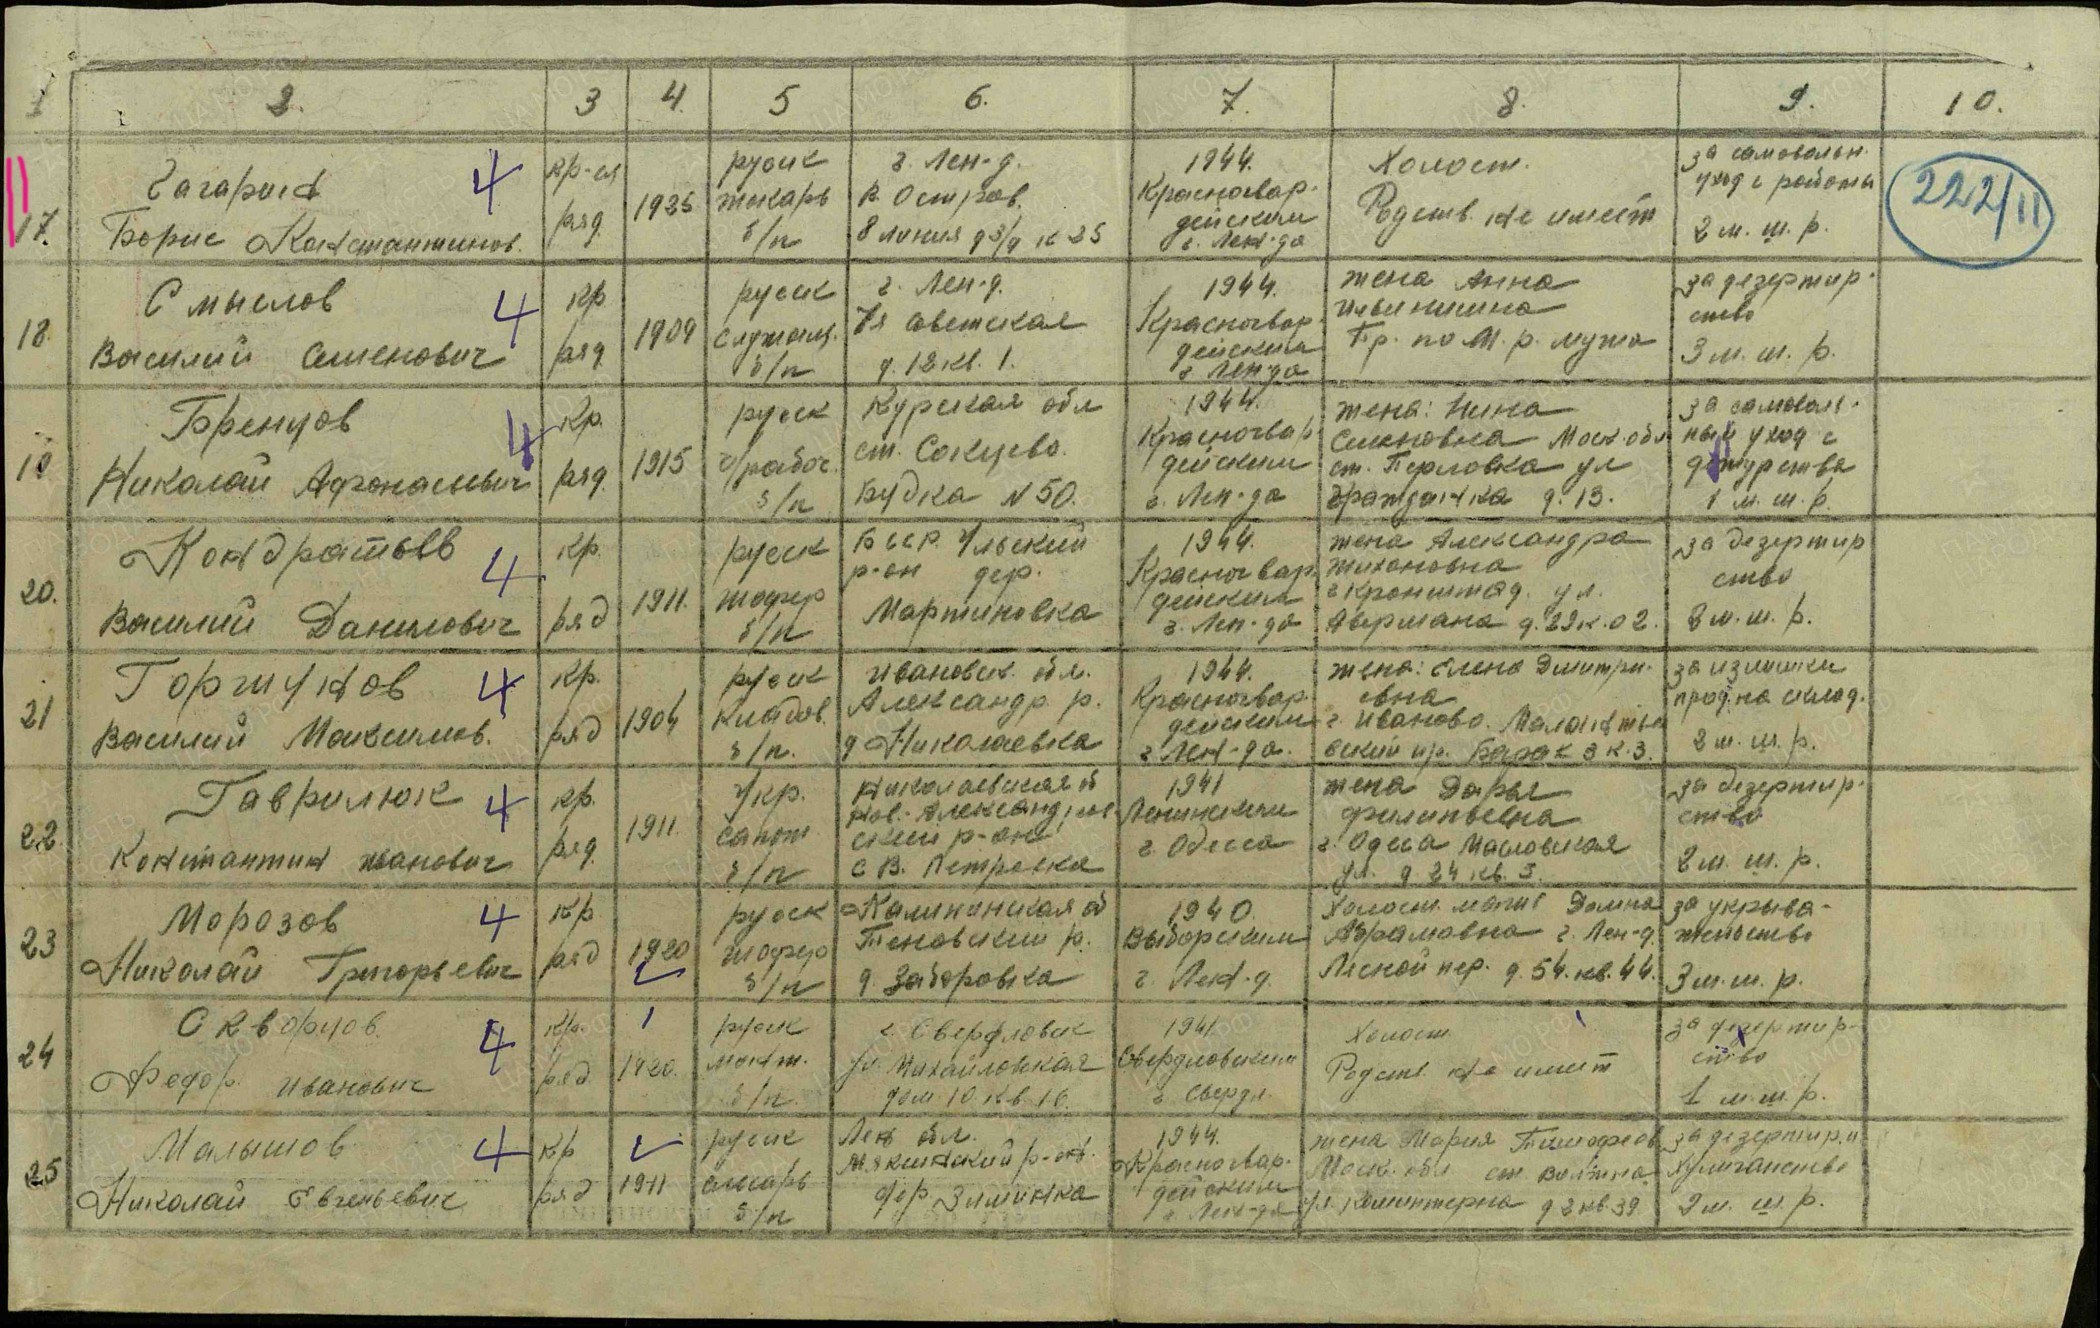 1 2. 3 4. 5 6. 7. 8. 9. 10.
17. Гагарин
Борис Константинов.
4
кр-ец
ряд.
1925
русск
токарь
б/п
г. Лен-д.
В. Остров.
8 линия
1944.
Красногвар-
дейским
г. Лен-да
Холост.
Родств. не имеет
за самовольн.
уход с работы
2 м. ш. р.
222/11
18. Смыслов
Василий Семенович
4
кр
ряд.
1909
русск
служащ.
б/п
г. Лен-д.
7я советская
д. 12 кв. 1.
1944.
Красногвар-
дейским
г. Лен-да
жена Анна
Ильинишна
Пр. по М. р. мужа
за дезертир-
ство
3 м. ш. р.
19 Бренцов
Николай Афонасьевич
4
Кр.
ряд.
1915
русск
ч/рабоч.
б/п
Курская обл
ст. Сокцево.
Будка N 50.
1944.
Красногвар-
дейским
г. Лен-да
жена: Нина
Семеновна Моск. обл
ст. Перловка ул
Гражданка д. 13.
за самоволь-
ный уход с
дежурства
1 м. ш. р.
20. Кондратьев
Василий Данилович
4
кр.
ряд
1911.
русск
шофер
б/п
БССР. Ульский
р-он дер.
Мартиновка
1944.
Красногвар-
дейским
г. Лен-да
жена Александра
Тихоновна
г. Кронштад. ул.
за дезертир
ство
21 Горшунов
Василий Максимов.
4
кр.
ряд
1904
русск
Кладов.
б/п.
Ивановск. обл.
Александр. р.
д Николаевка
1944.
Красногвар-
дейским
г. Лен-да.
жена: Елена Дмитри-
евна
г. Иваново.
Барак 3 к. 3.
за излишки
прод. на склад.
2 м. ш. р.
22. Гаврилюк
Константин Иванович
4
кр.
ряд.
1911.
Укр.
сапож
б/п
Николаевская о
Нов.-Александров-
ский р-он
с В. Петровка
1941
Ленинским
г. Одесса
жена Дарья
Филиповна
г. Одесса Масловская
ул. д 24 кв. 5.
за дезертир-
ство
2 м. ш. р.
23 Морозов
Николай Григорьевич
4
кр.
ряд
1920
русск
шофер
б/п
Калининская об
Теновский р.
д. Заборовка
1940.
Выборгским
г. Лен-д.
Холост. мать Домна
Абрамовна г. Лен-д.
Лесной пер. д. 54. кв. 44.
за укрыва-
тельство
3 м. ш. р.
24 Скворцов
Федор Иванович
4
кр.
ряд
1920.
русск
монт.
б/п.
г. Свердловск
ул. Михайловская
дом. 10. кв. 16.
1941
Свердловским
г. Свердл.
Холост
Родств. не имеет
за дезертир-
ство
1 м. ш. р.
25 Малышов
Николай Евгеньевич
4
кр
ряд
1911
русск
слесарь
б/п
Лен обл.
Мякишский р-он.
дер. Зиминка
1944.
Красногвар-
дейским
г. Лен-да
жена Мария Тимофеев
Моск. обл ст.
ул. Коминтерна д 2 кв. 39
за дезертир. и
хулиганство
2 м. ш. р.